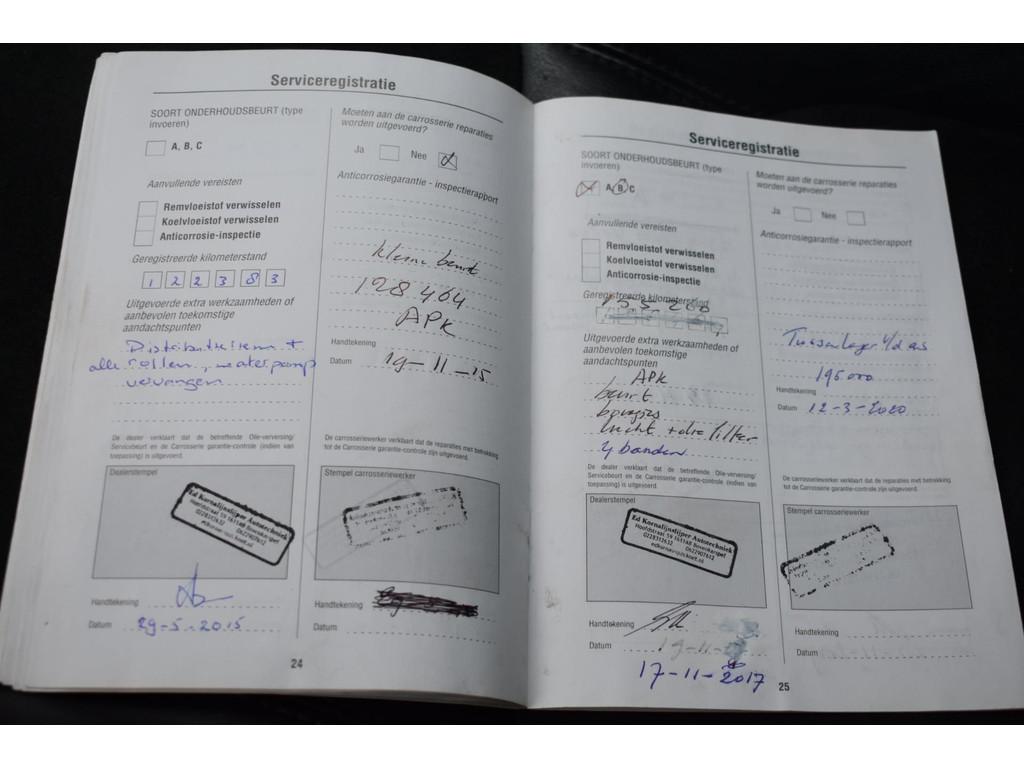 Serviceregistratie
SOORT ONDERHOUDSBEURT (type
invoeren)
A, B, C
Aanvullende vereisten
Remvloeistof verwisselen
Koelvloeistof verwisselen
Anticorrosie-inspectie
Geregistreerde kilometerstand
122383
Uitgevoerde extra werkzaamheden of
aanbevolen toekomstige
aandachtspunten
Distributieriem +
alle rollen, waterpomp
vervangen
De dealer verklaart dat de betreffende Olie-verversing/
Servicebeurt en de Carrosserie garantie-controle (indien van
toepassing) is uitgevoerd.
Dealerstempel
Ed Kornalijnslijper Autotechniek
Hoofdstraat 59 1611AB Bovenkarspel
0228312632 0622907632
Handtekening
Datum 29-5-2015
Moeten aan de carrosserie reparaties
worden uitgevoerd?
Ja Nee
Anticorrosiegarantie - inspectierapport
kleine beurt
128464
APK
Handtekening
Datum 19-11-15
De carrosseriewerker verklaart dat de reparaties met betrekking
tot de Carrosserie garantie-controle zijn uitgevoerd.
Stempel carrosseriewerker
Handtekening
Datum
24
Serviceregistratie
SOORT ONDERHOUDSBEURT (type
invoeren)
A, B, C
Aanvullende vereisten
Remvloeistof verwisselen
Koelvloeistof verwisselen
Anticorrosie-inspectie
Geregistreerde kilometerstand
Uitgevoerde extra werkzaamheden of
aanbevolen toekomstige
aandachtspunten
APK
beurt
bougies
lucht + olie filter
4 banden
De dealer verklaart dat de betreffende Olie-verversing/
Servicebeurt en de Carrosserie garantie-controle (indien van
toepassing) is uitgevoerd.
Dealerstempel
Ed Kornalijnslijper Autotechniek
Hoofdstraat 59 1611AB Bovenkarspel
0228312632 0622907632
Handtekening
Datum 19-11
17-11-2017
Moeten aan de carrosserie reparaties
worden uitgevoerd?
Ja Nee
Anticorrosiegarantie - inspectierapport
Tussenlager v/d as
195.000
Handtekening
Datum 12-3-2020
De carrosseriewerker verklaart dat de reparaties met betrekking
tot de Carrosserie garantie-controle zijn uitgevoerd.
Stempel carrosseriewerker
Handtekening
Datum
25